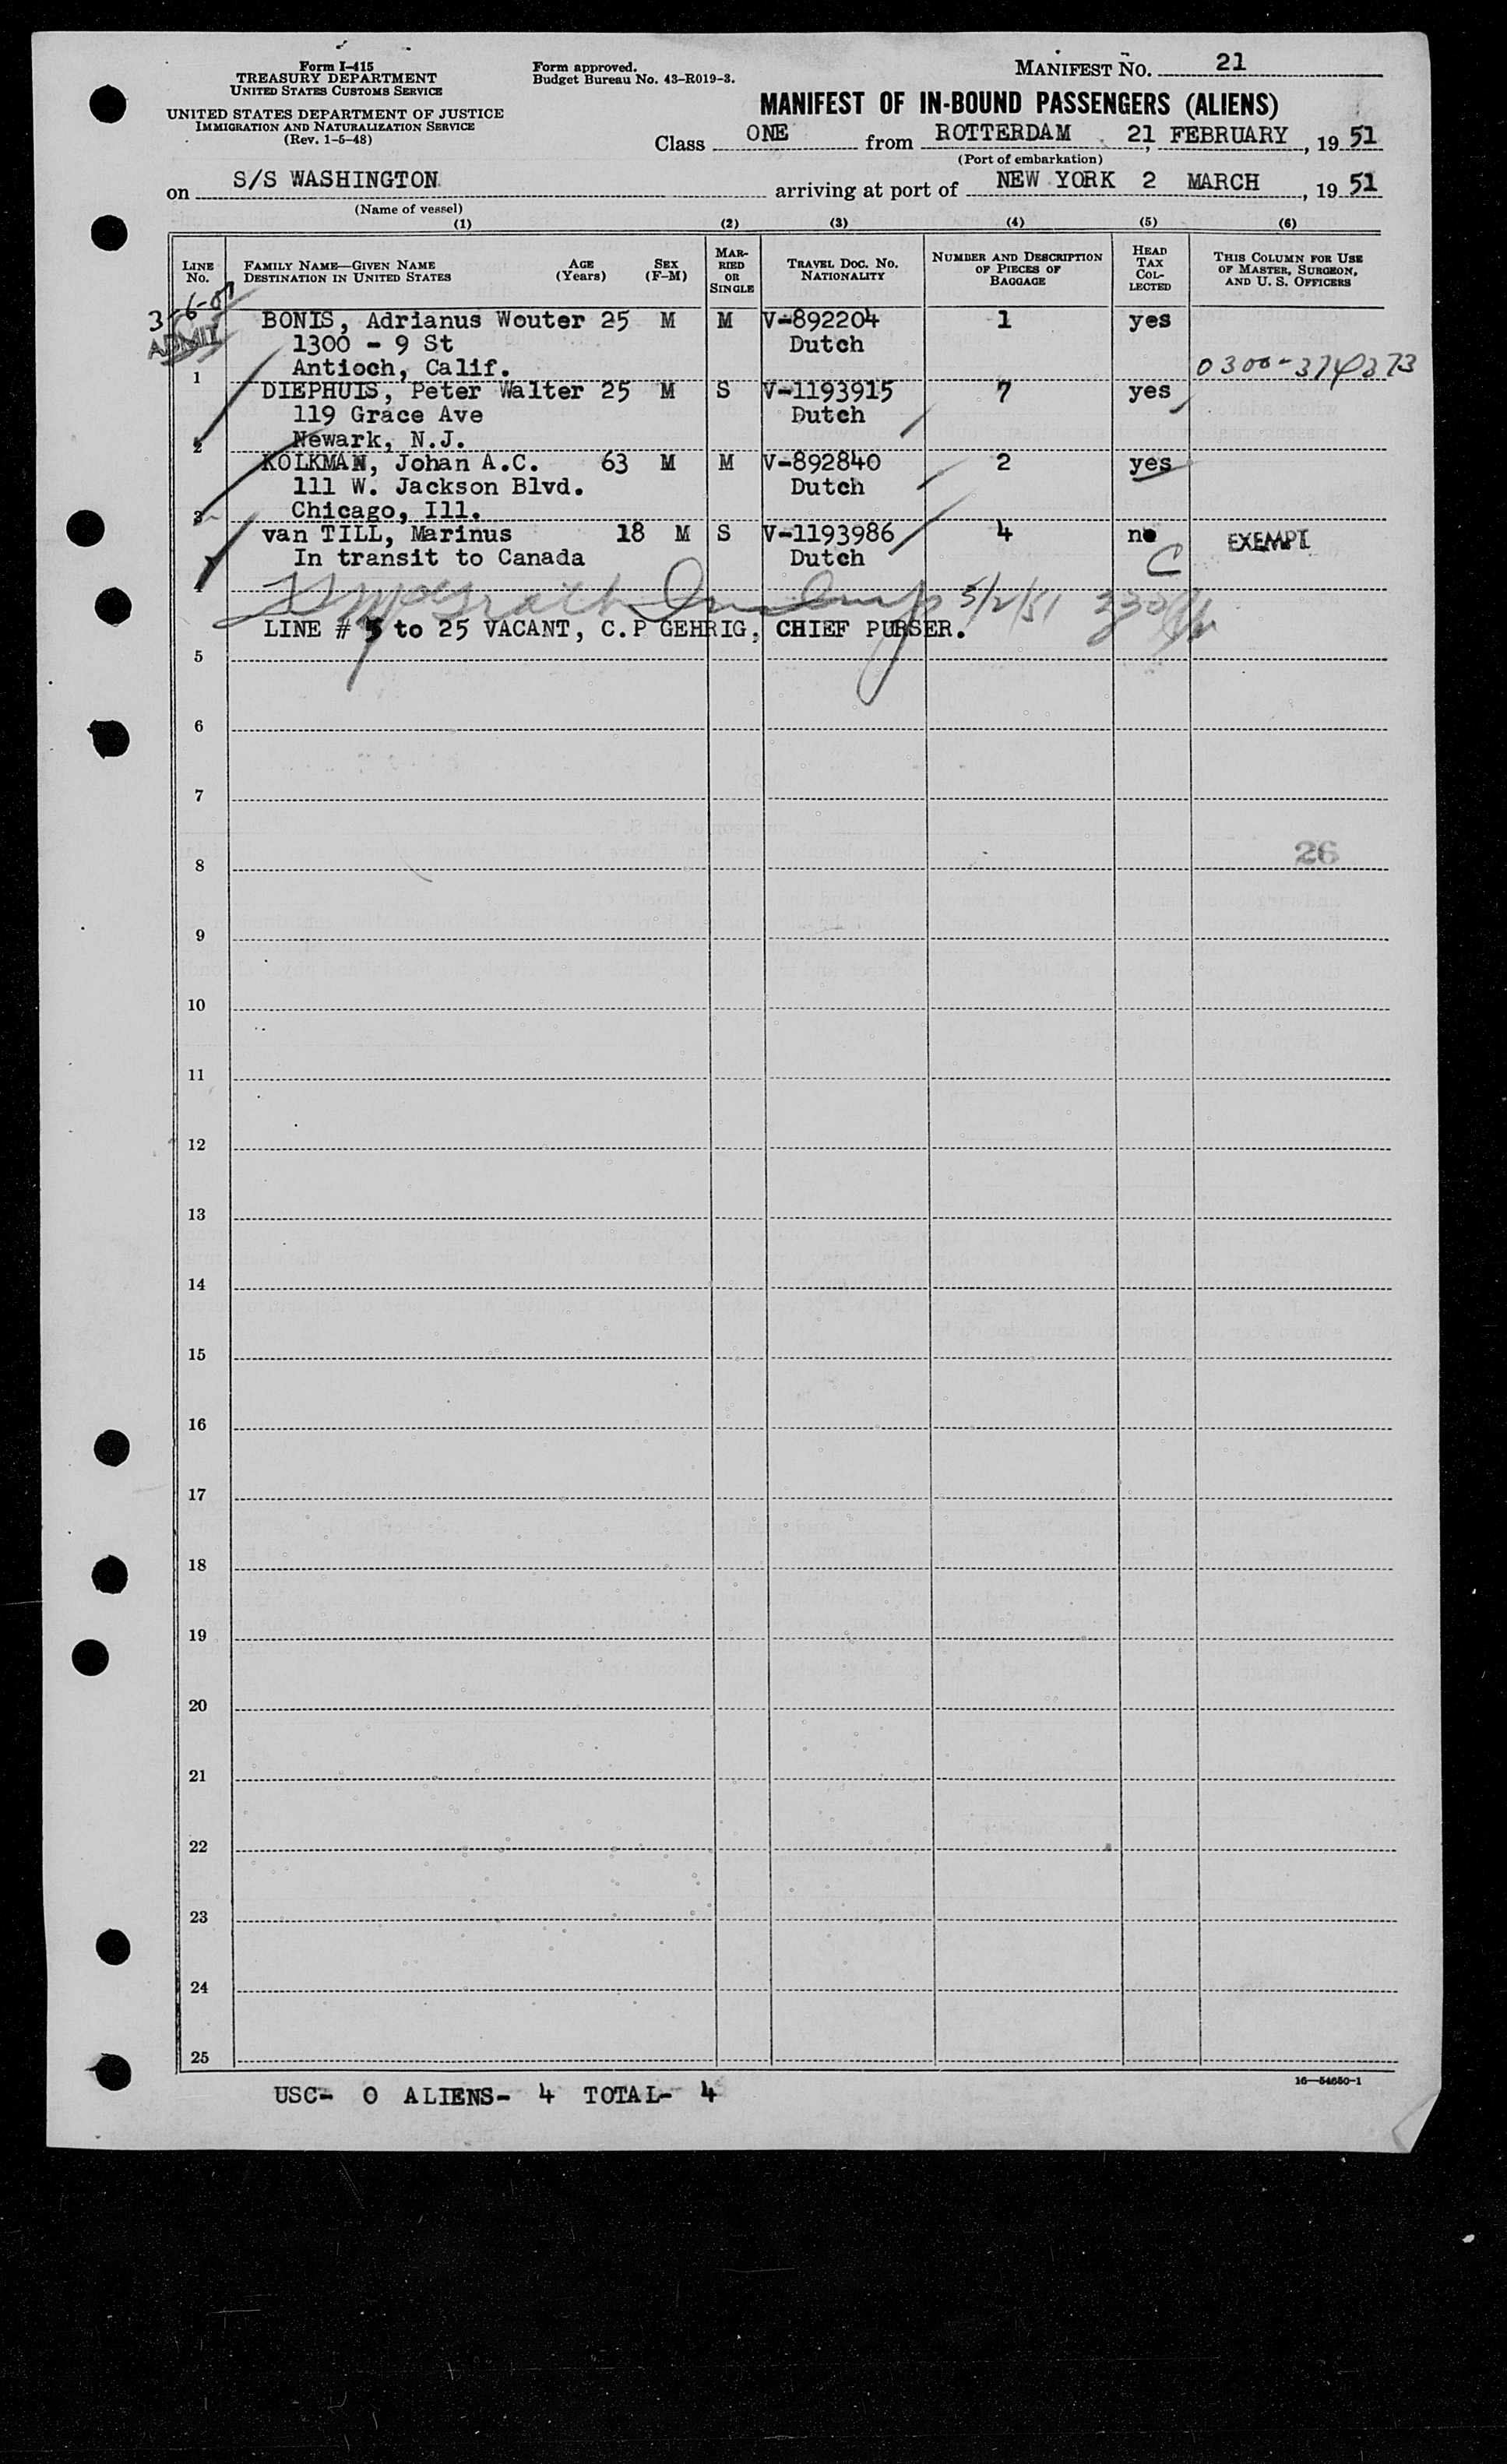 Form I-415
TREASURY DEPARTMENT
UNITED STATES CUSTOMS SERVICE
UNITED STATES DEPARTMENT OF JUSTICE
IMMIGRATION AND NATURALIZATION SERVICE
(Rev. 1-5-48)
Form approved.
Budget Bureau No. 43-R019-3.
MANIFEST NO. 21
MANIFEST OF IN-BOUND PASSENGERS (ALIENS)
Class ONE from ROTTERDAM, 21 FEBRUARY, 1951
(Port of embarkation)
on S/S WASHINGTON arriving at port of NEW YORK 2 MARCH, 1951
(Name of vessel)
(1) (2) (3) (4) (5) (6)
LINE No. FAMILY NAME—GIVEN NAME DESTINATION IN UNITED STATES AGE (Years) SEX (F-M) MARRIED OR SINGLE TRAVEL DOC. NO. NATIONALITY NUMBER AND DESCRIPTION OF PIECES OF BAGGAGE HEAD TAX COLLECTED THIS COLUMN FOR USE OF MASTER, SURGEON, AND U. S. OFFICERS
ADMIT
BONIS, Adrianus Wouter 25 M M V-892204 1 yes
1300 - 9 St Dutch
1 Antioch, Calif. 0300-374273
DIEPHUIS, Peter Walter 25 M S V-1193915 7 yes
119 Grace Ave Dutch
2 Newark, N.J.
KOLKMAN, Johan A.C. 63 M M V-892840 2 yes
111 W. Jackson Blvd. Dutch
3 Chicago, Ill.
van TILL, Marinus 18 M S V-1193986 4 no EXEMPT
In transit to Canada Dutch C
4 3/2/51
LINE # 5 to 25 VACANT, C.P GEHRIG, CHIEF PURSER.
5
6
7
8
26
9
10
11
12
13
14
15
16
17
18
19
20
21
22
23
24
25
16—54650-1
USC- 0 ALIENS- 4 TOTAL- 4